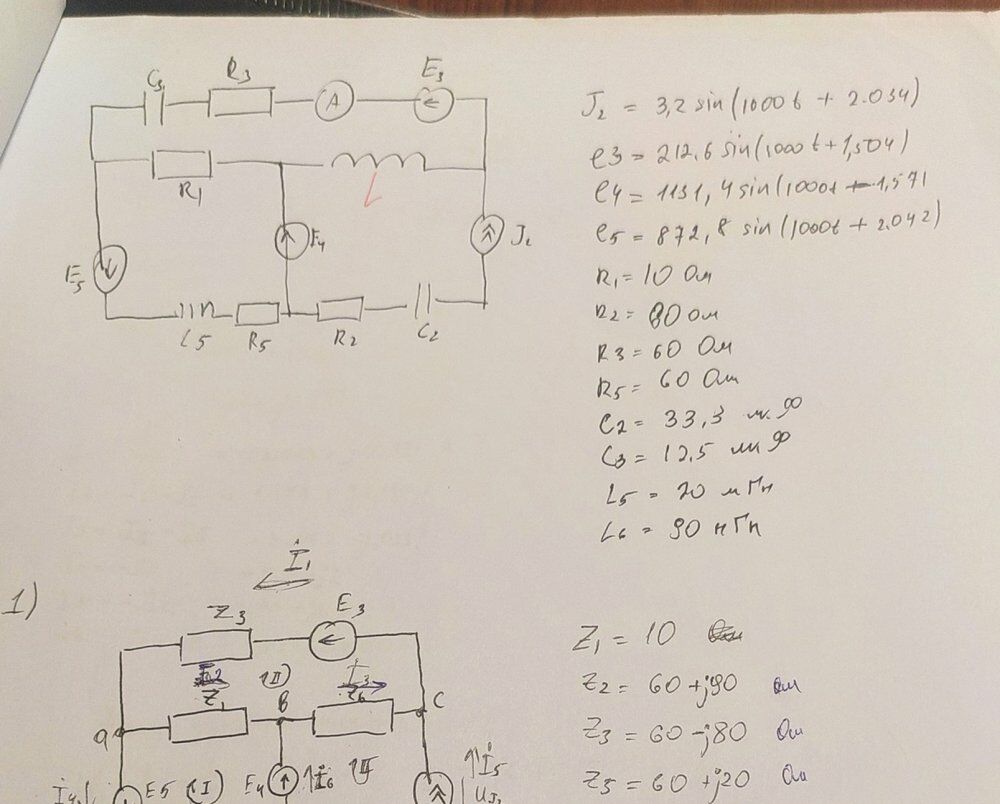 C3 R3 A E3
R1 L
E5 E4 J2
L5 R5 R2 C2
J2 = 3,2 sin(1000t + 2.034)
e3 = 212,6 sin(1000t + 1,504)
e4 = 1131,4 sin(1000t - 1,571
e5 = 872,8 sin(1000t + 2.042)
R1 = 10 Ом
R2 = 80 Ом
R3 = 60 Ом
R5 = 60 Ом
C2 = 33,3 мкФ
C3 = 12.5 мкФ
L5 = 20 мГн
L6 = 90 мГн
1)
İ1
Z3 E3
Z1 (II) I3 Z6
a B C
E5 (I) E4 İ6 İ5
UJ2
Z1 = 10
Z2 = 60 + j90 Ом
Z3 = 60 - j80 Ом
Z5 = 60 + j20 Ом